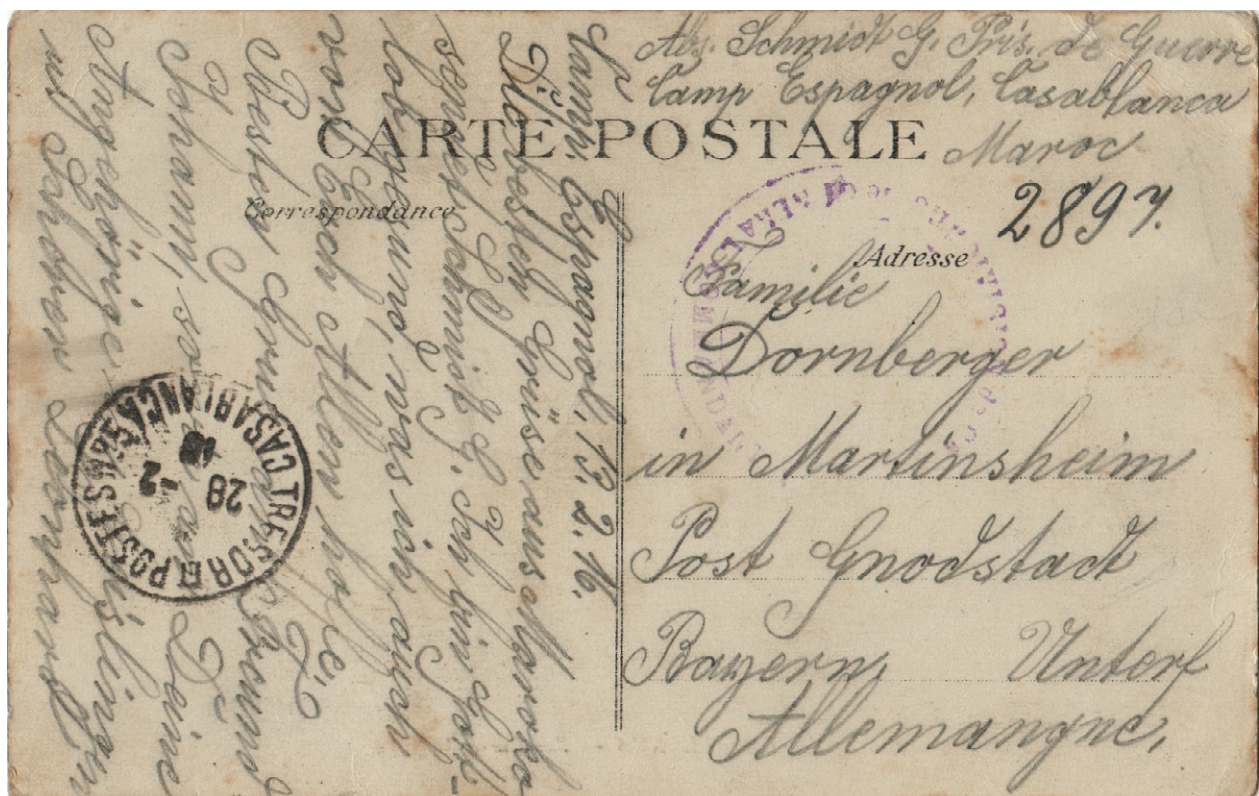 Abs. Schmidt G. Pris. de Guerre
Camp Espagnol, Casablanca
Maroc
CARTE POSTALE
2897.
Correspondance
Adresse
Familie
Dornberger
in Martinsheim
Post Gnodstadt
Bayern, Unterf
Allemangne,
Camp Espagnol, 13. 2. 16.
Die besten Grüsse aus Marokko
sendet Schmidt G. Ich bin Gott-
lob gesund, was ich auch
von Euch Allen hoffe.
Besten Gruss Freund
Johann, sowie an Deine
Angehörige
Leonhard
TRESOR ET POSTES
CASABLANCA
28 -2
16